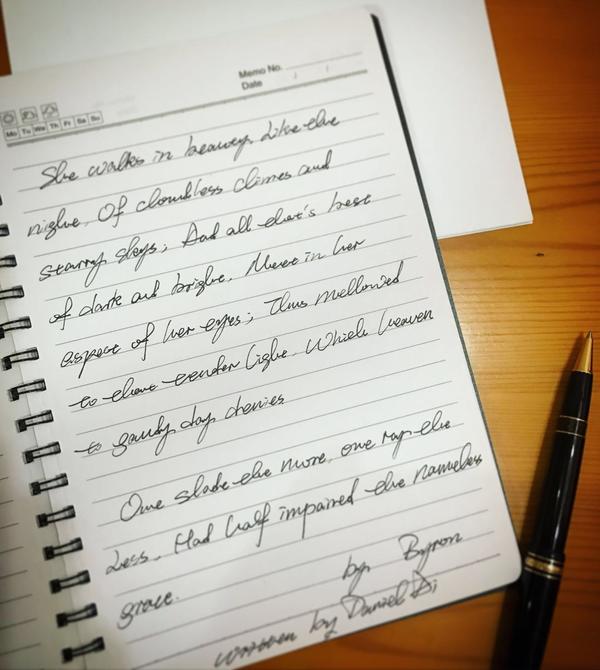 Memo No.
Date / /
Mo Tu We Th Fr Sa Su
She walks in beauty, Like the
night, Of cloudless climes and
starry skys; And all that's best
of dark and bright, Meet in her
aspect of her eyes; Thus mellowed
to that tender light, Which heaven
to gaudy day denies
One shade the more, one ray the
Less, Had half impaired the nameless
grace.
by Byron
written by Daniel Di